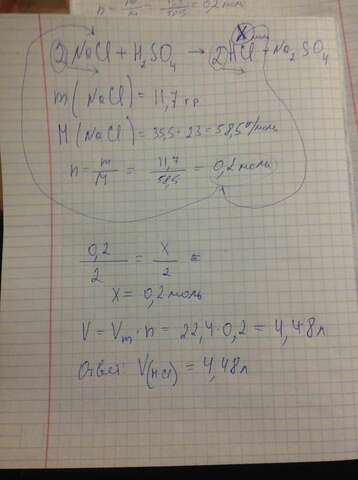 n = m/M = 11,7/58,5 = 0,2 моль
X моль
2NaCl + H₂SO₄ → 2HCl + Na₂SO₄
m(NaCl) = 11,7 гр
M(NaCl) = 35,5 + 23 = 58,5 г/моль
n = m/M = 11,7/58,5 = 0,2 моль
0,2/2 = X/2 =
X = 0,2 моль
V = Vm · n = 22,4 · 0,2 = 4,48 л
Ответ: V(HCl) = 4,48 л